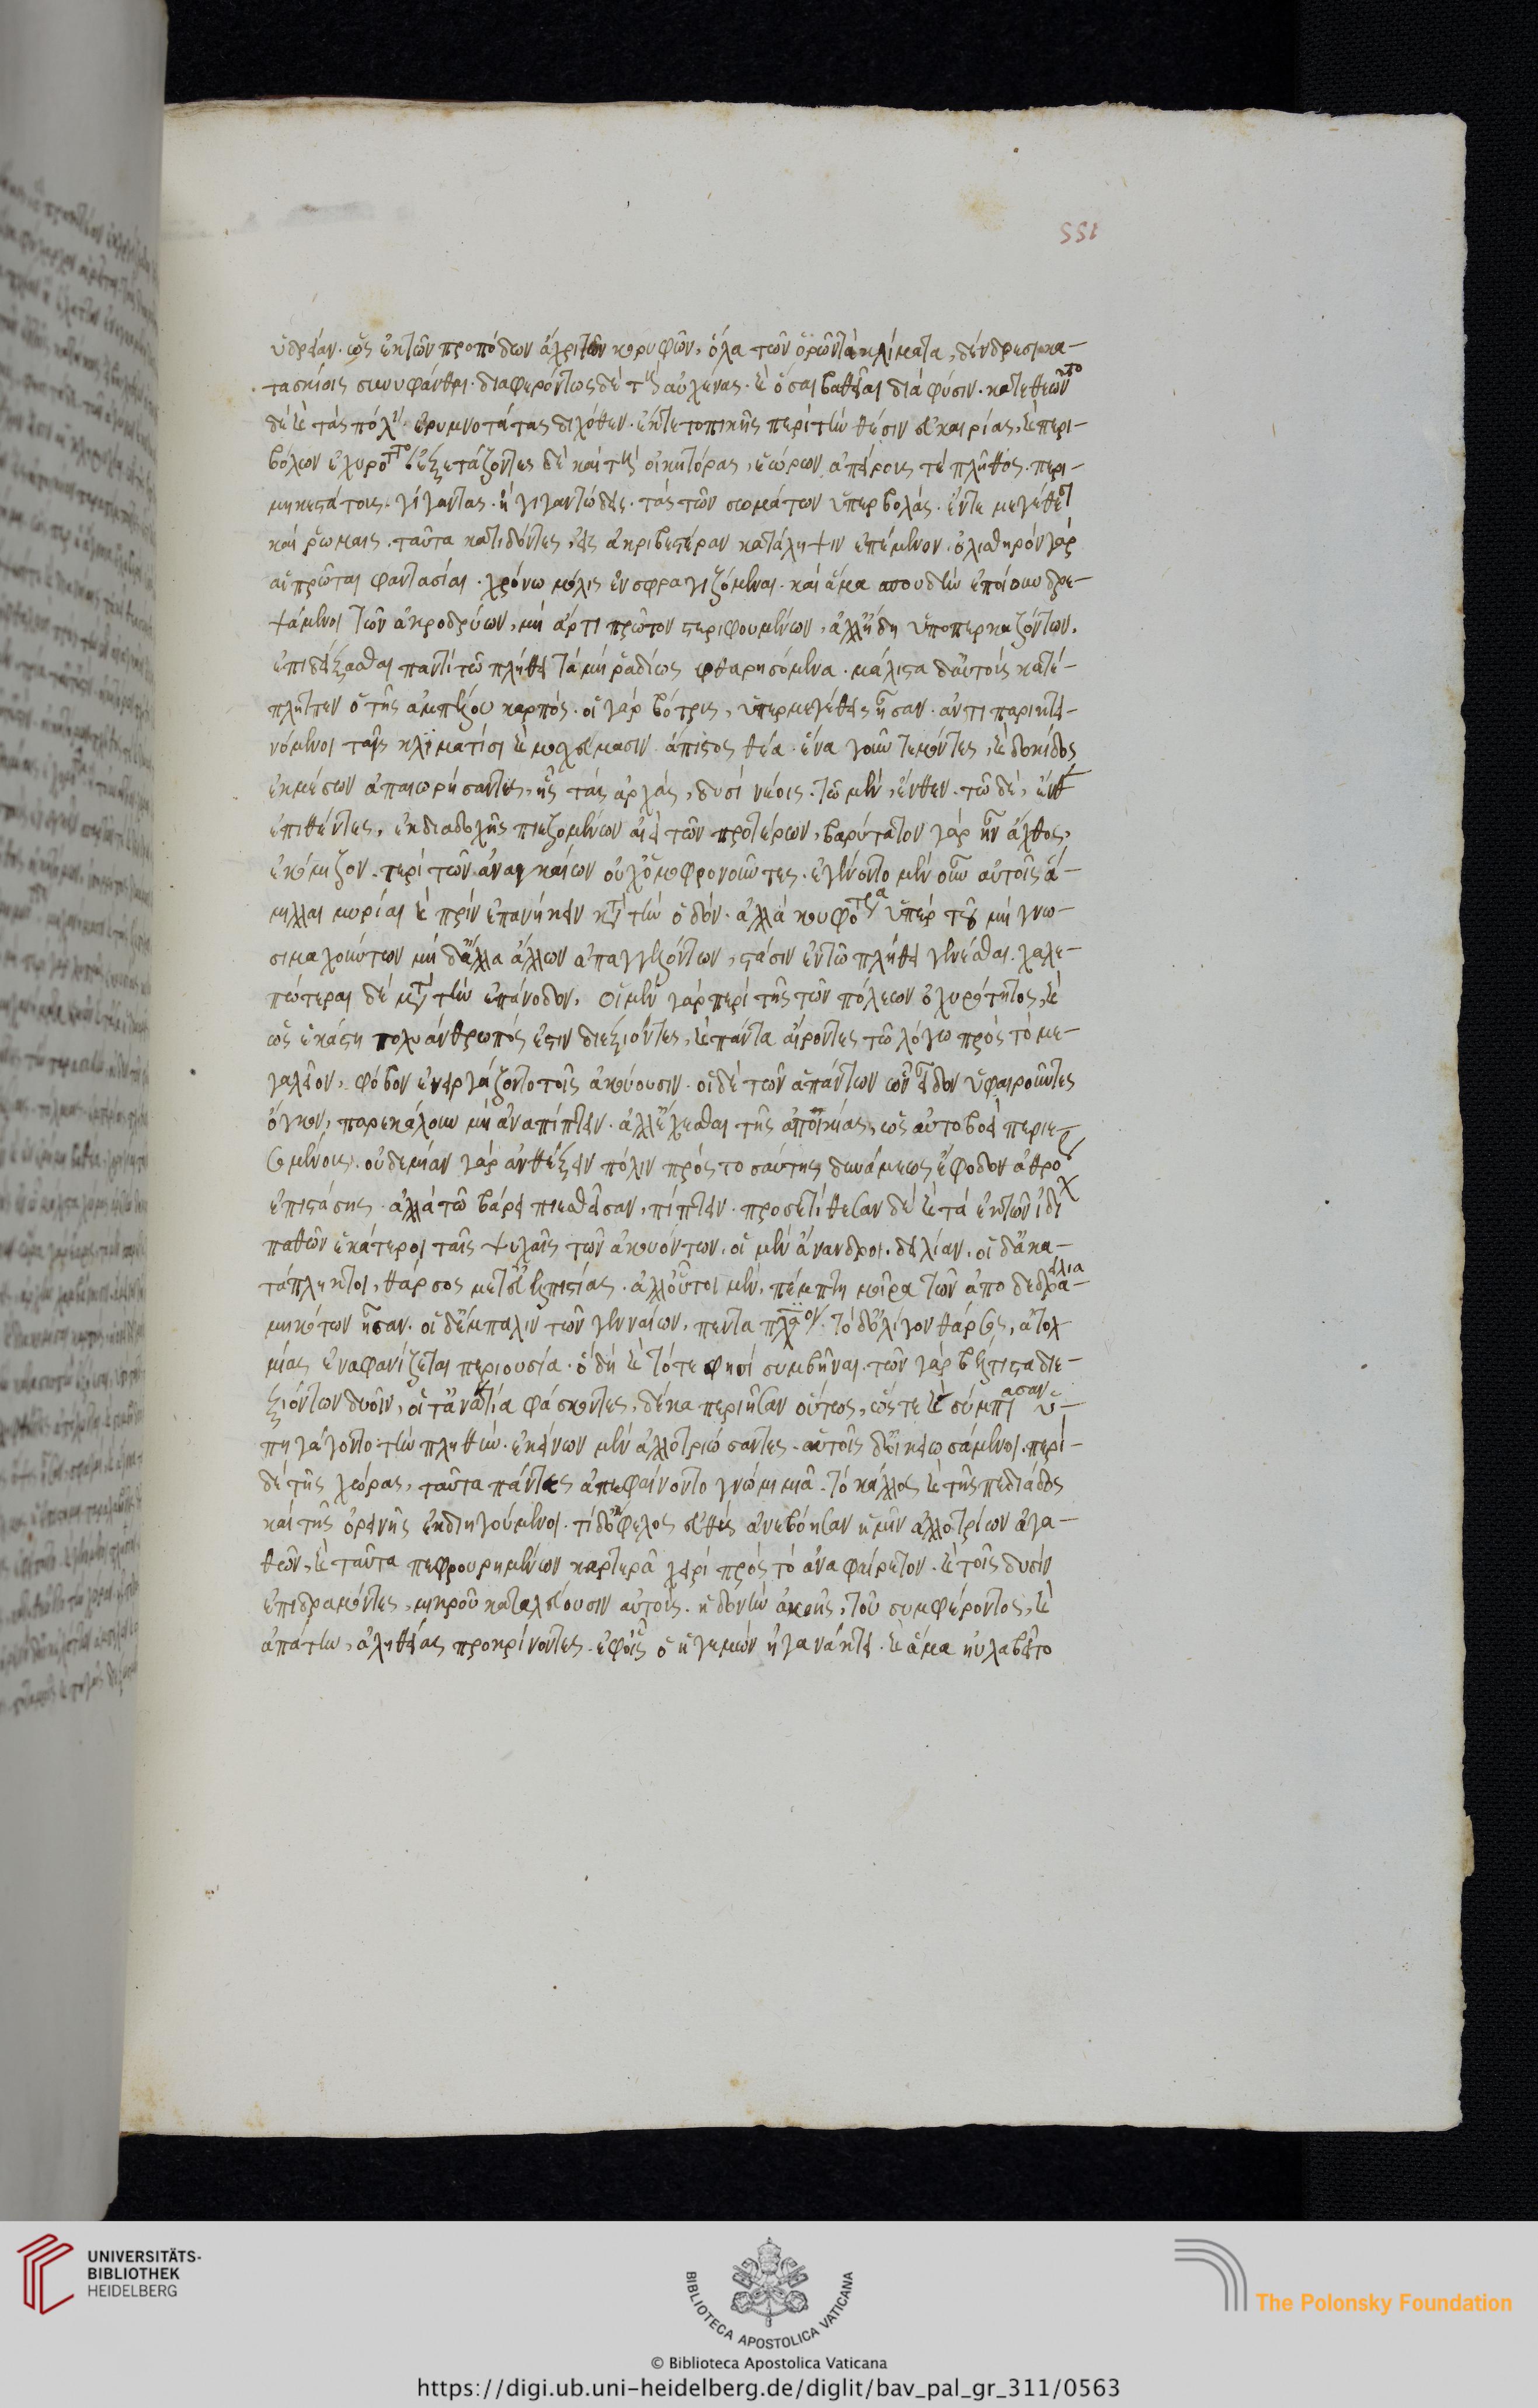 551
ὕδρείαν. ὡς ἐκ τῶν προπόδων ἄχρι τῶν κορυφῶν, ὅλα τῶν ὀρῶν τὰ κλίματα, δένδρεσι κα-
τασκίοις συνυφάνθαι. διαφερόντως δὲ τοὺς αὐχένας. καὶ ὅσαι βαθεῖαι διαφύσεις. κατεθεῶντο
δὲ καὶ τὰς πόλεις ἐρυμνοτάτας διχόθεν. ἔκ τε τοπικῆς περὶ τὴν θέσιν εὐκαιρίας, καὶ περι-
βόλων ἐχυρότητος ἐξετάζοντες δὲ καὶ τοὺς οἰκήτορας, ἑώρων ἀπείρους τὸ πλῆθος. περι-
μηκεστάτους. γίγαντας. ἢ γιγαντώδεις. τὰς τῶν σωμάτων ὑπερβολάς. ἔν τε μεγέθεσι
καὶ ῥώμαις. ταῦτα κατιδόντες, εἰς ἀκριβεστέραν κατάληψιν ἐπέμενον. ὀλισθηρὸν γὰρ
αἱ πρῶται φαντασίαι. χρόνω μόλις ἐνσφραγιζόμεναι. καὶ ἅμα σπουδὴν ἐποιοῦντο δρε-
ψάμενοι τῶν ἀκροδρύων, μὴ ἄρτι πρῶτον στεριφουμένων, ἀλλ' ἤδη ὑποπερκαζόντων,
ἐπιδείξασθαι παντὶ τῶ πλήθει τὰ μὴ ῥαδίως φθαρησόμενα. μάλιστα δ' αὐτοὺς κατέ-
πληττεν ὁ τῆς ἀμπέλου καρπός. οἱ γὰρ βότρυες, ὑπερμεγέθεις ἦσαν. ἀντιπαρεκτει-
νόμενοι ταῖς κληματίσι καὶ μοσχεύμασιν ἄπιστος θέα. ἕνα γοῦν τεμόντες, καὶ δοκίδος
ἐκ μέσων ἀπαιωρήσαντες, ἧς τὰς ἀρχάς, δυσὶ νέοις. τῶ μὲν, ἔνθεν. τῶ δὲ, ἔνθεν
ἐπιθέντες, ἐκ διαδοχῆς πιεζομένων ἀεὶ τῶν προτέρων, βαρύτατον γὰρ ἦν ἄχθος,
ἐκόμιζον. περὶ τῶν ἀναγκαίων οὐχ ὁμοφρονοῦντες. ἐγένοντο μὲν οὖν αὐτοῖς ἅ-
μιλλαι μυρίαι καὶ πρὶν ἐπανήκειν κατὰ τὴν ὁδόν. ἀλλὰ κουφότεραι ὑπὲρ τοῦ μὴ γνω-
σιμαχούντων μὴ δ' ἄλλα ἄλλων ἀπαγγελλόντων, στάσιν ἐν τῶ πλήθει γενέσθαι. χαλε-
πώτεραι δὲ μετὰ τὴν ἐπάνοδον. οἱ μὲν γὰρ περὶ τῆς τῶν πόλεων ὀχυρότητος, καὶ
ὡς ἑκάστη πολυάνθρωπός ἐστιν διεξιόντες, καὶ πάντα αἴροντες τῶ λόγω πρὸς τὸ με-
γαλεῖον, φόβον ἐνειργάζοντο τοῖς ἀκούουσιν. οἱ δὲ τῶν ἁπάντων ὧν εἶδον ὑφαιροῦντες
ὄγκον, παρεκάλουν μὴ ἀναπίπτειν. ἀλλ' ἔχεσθαι τῆς ἀποικίας, ὡς αὐτοβοεὶ περιε-
σομένους. οὐδεμίαν γὰρ ἀνθέξειν πόλιν πρὸς τοσαύτης δυνάμεως ἔφοδον ἀθρόας
ἐπιστάσης. ἀλλὰ τῶ βάρει πιεσθεῖσαν, πίπτειν. προσετίθεσαν δὲ καὶ τὰ ἐκ τῶν ἰδίων
παθῶν ἑκάτεροι ταῖς ψυχαῖς τῶν ἀκουόντων. οἱ μὲν ἄνανδροι. δειλίαν. οἱ δ' ἀκα-
τάπληκτοι, θάρσος μετ' εὐελπιστίας. ἀλλ' οὗτοι μὲν, πέμπτη μοῖρα τῶν ἀποδεδειλια-
μηκότων ἦσαν. οἱ δ' ἔμπαλιν τῶν γενναίων, πενταπλάσιον. τὸ δ' ὀλίγον θάρσος, ἀτολ
μίας ἐναφανίζεται περιουσία. ὃ δὴ καὶ τότε φησὶ συμβῆναι. τῶν γὰρ βέλτιστα διε-
ξιόντων δυοῖν, οἱ τἀναντία φάσκοντες, δέκα περιῆσαν οὕτως, ὥστε καὶ σύμπασαν ὑ-
πηγάγοντο τὴν πληθὺν. ἐκείνων μὲν ἀλλοτριώσαντες. αὑτοῖς δ' οἰκειωσάμενοι. περὶ
δὲ τῆς χώρας, ταῦτα πάντες ἀπεφαίνοντο γνώμη μιᾶ. τὸ κάλλος καὶ τῆς πεδιάδος
καὶ τῆς ὀρεινῆς ἐκδιηγούμενοι. τί δ' ὄφελος εὐθὺς ἀνεβόησαν ἡμῖν ἀλλοτρίων ἀγα-
θῶν, καὶ ταῦτα πεφρουρημένων καρτερᾶ χειρὶ πρὸς τὸ ἀναφαίρετον. καὶ τοῖς δυσὶν
ἐπιδραμόντες, μικροῦ καταλεύουσιν αὐτούς. ἡδονὴν ἀκοῆς, τοῦ συμφέροντος, καὶ
ἀπάτην, ἀληθείας προκρίνοντες. ἐφ' οἷς ὁ ἡγεμὼν ἠγανάκτει. καὶ ἅμα ηὐλαβεῖτο
UNIVERSITÄTS-
BIBLIOTHEK
HEIDELBERG
BIBLIOTECA APOSTOLICA VATICANA
The Polonsky Foundation
© Biblioteca Apostolica Vaticana
https://digi.ub.uni-heidelberg.de/diglit/bav_pal_gr_311/0563